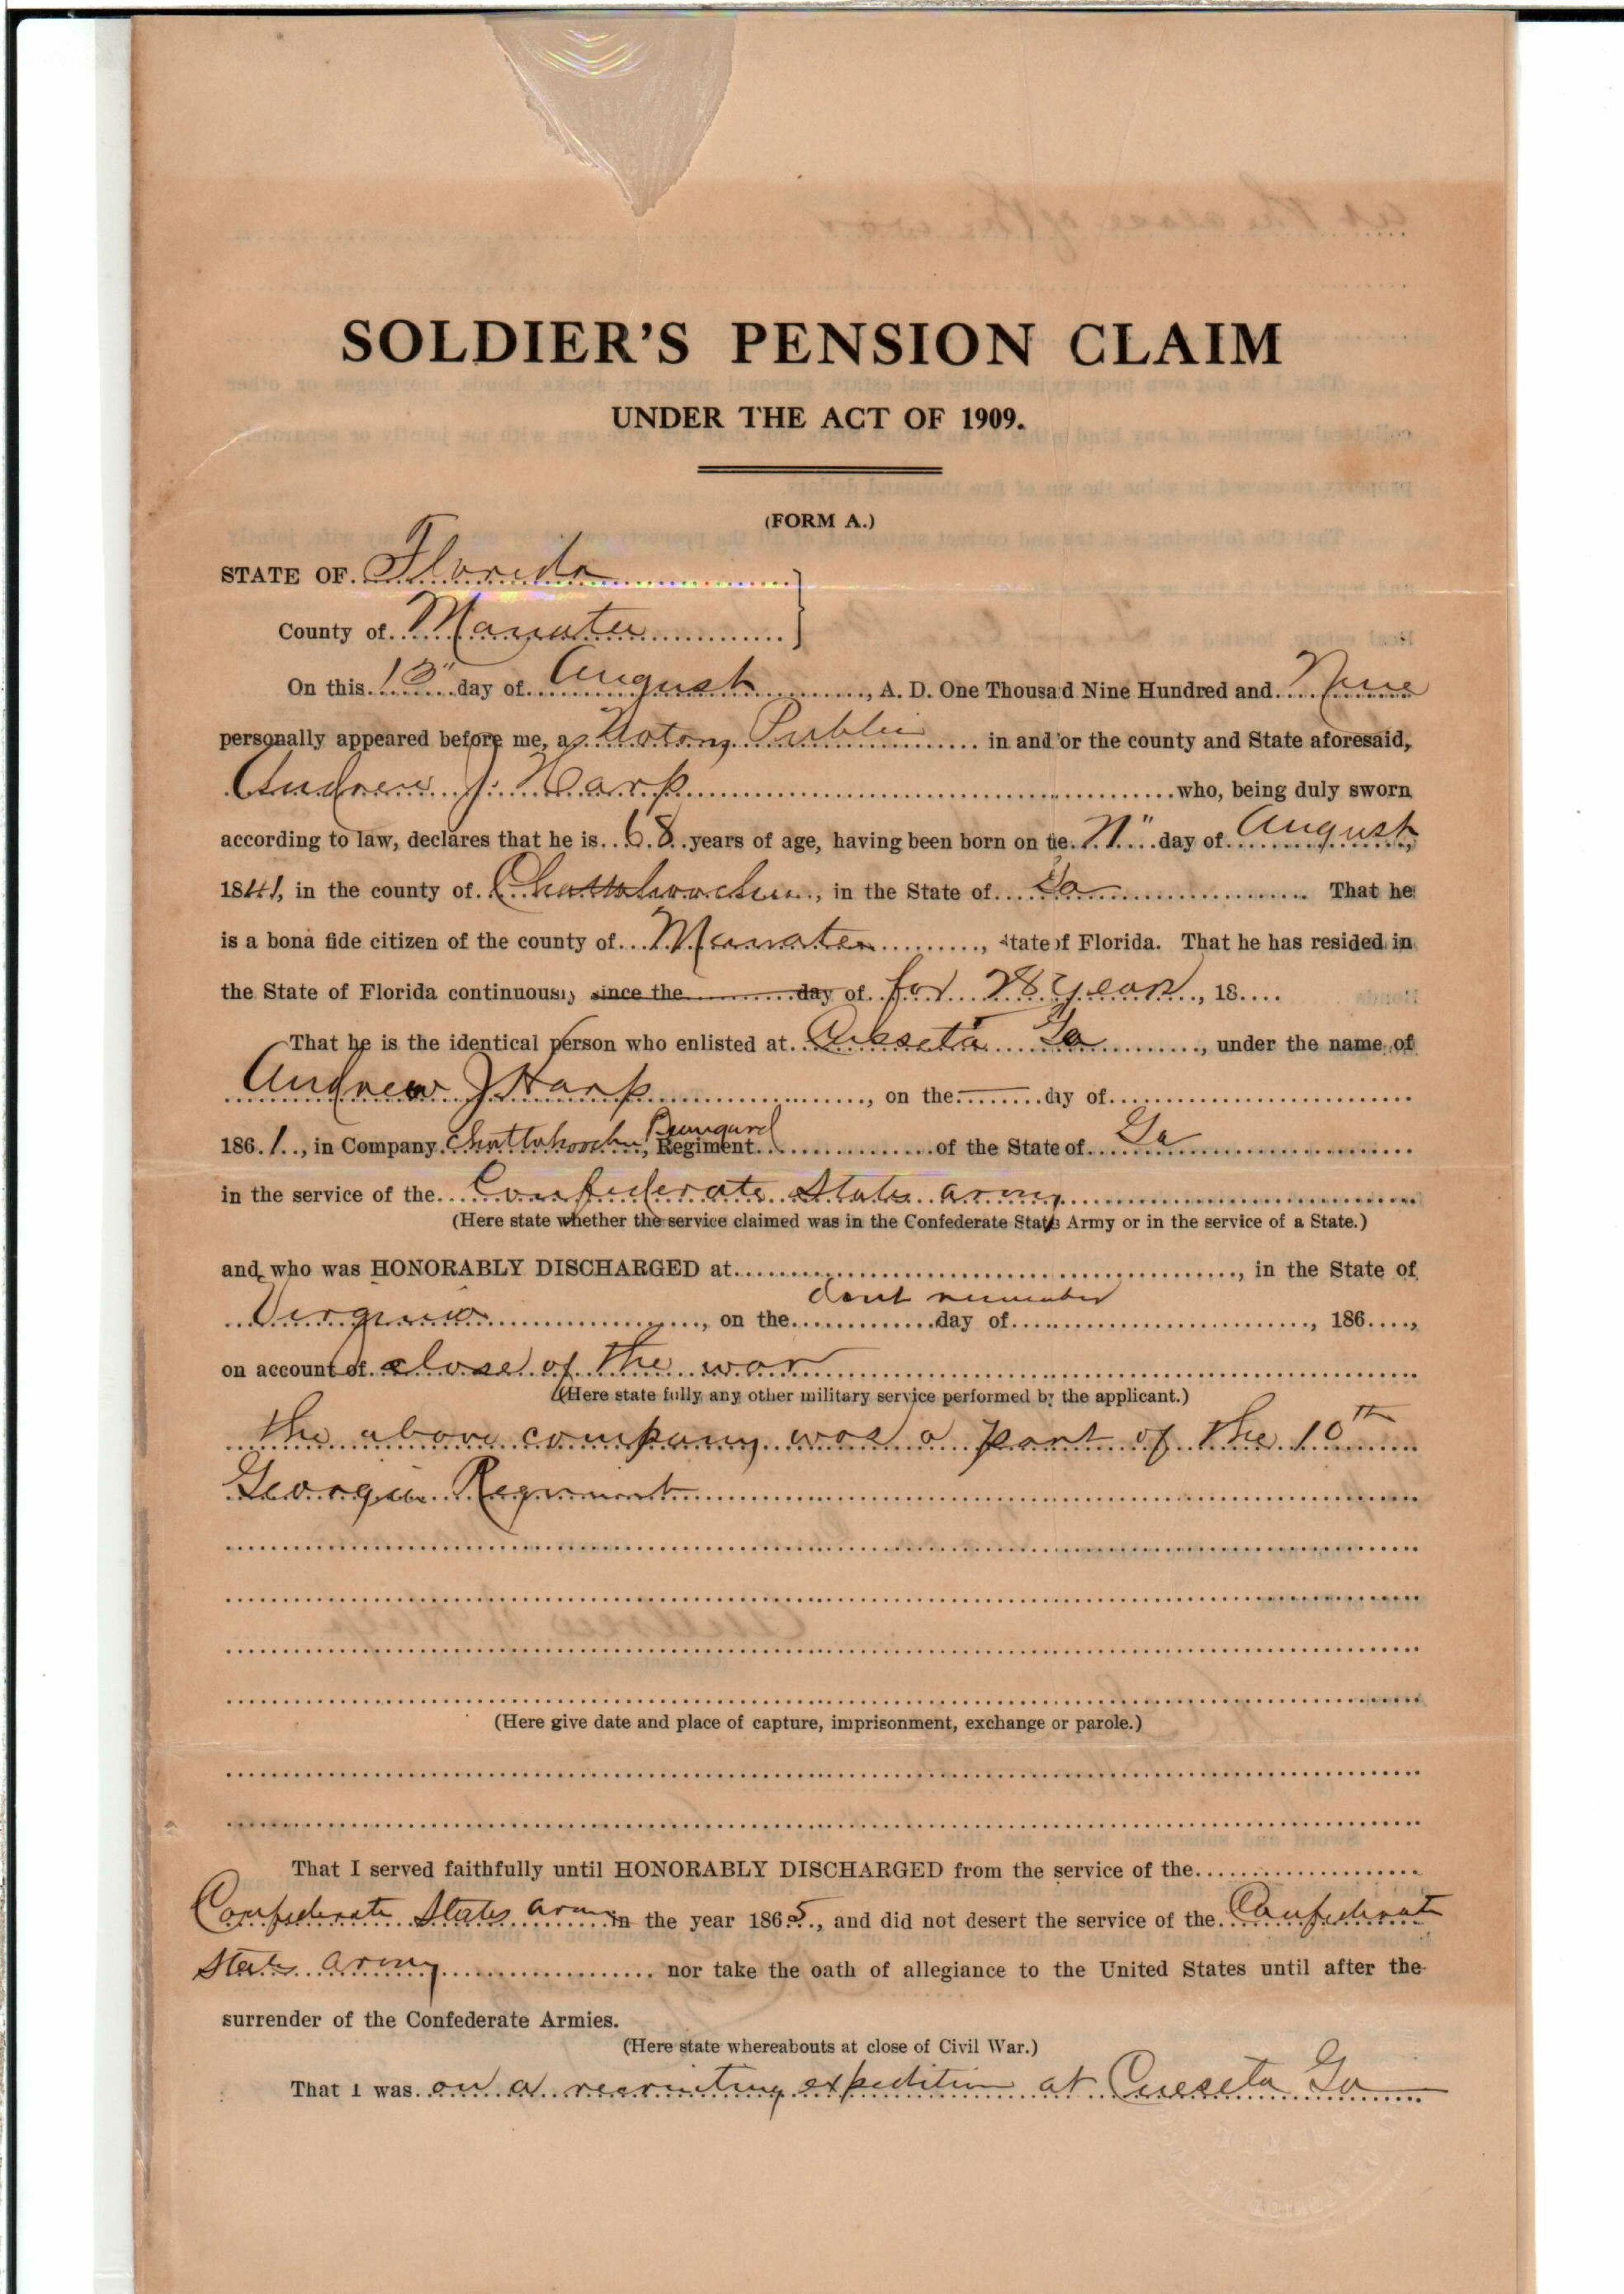 SOLDIER'S PENSION CLAIM
UNDER THE ACT OF 1909.
(FORM A.)
STATE OF Florida
County of Manatee
On this 13" day of August, A. D. One Thousand Nine Hundred and Nine
personally appeared before me, a Notary Public in and for the county and State aforesaid,
Andrew J. Harp who, being duly sworn
according to law, declares that he is 68 years of age, having been born on the day of August
1841, in the county of Chattahoochee, in the State of Ga That he
is a bona fide citizen of the county of Manatee, State of Florida. That he has resided in
the State of Florida continuously since the day of for 28 years, 18....
That he is the identical person who enlisted at Cusseta Ga, under the name of
Andrew J Harp, on the day of
1861, in Company Chattahoochee Regiment of the State of Ga
in the service of the Confederate States army
(Here state whether the service claimed was in the Confederate States Army or in the service of a State.)
and who was HONORABLY DISCHARGED at, in the State of
dont remember
Virginia, on the day of, 186....,
on account of close of the war
(Here state fully any other military service performed by the applicant.)
the above company was a part of the 10th
Georgia Regiment
(Here give date and place of capture, imprisonment, exchange or parole.)
That I served faithfully until HONORABLY DISCHARGED from the service of the
Confederate States army in the year 1865, and did not desert the service of the Confederate
States army nor take the oath of allegiance to the United States until after the
surrender of the Confederate Armies.
(Here state whereabouts at close of Civil War.)
That I was on a recruiting expedition at Cuseeta Ga